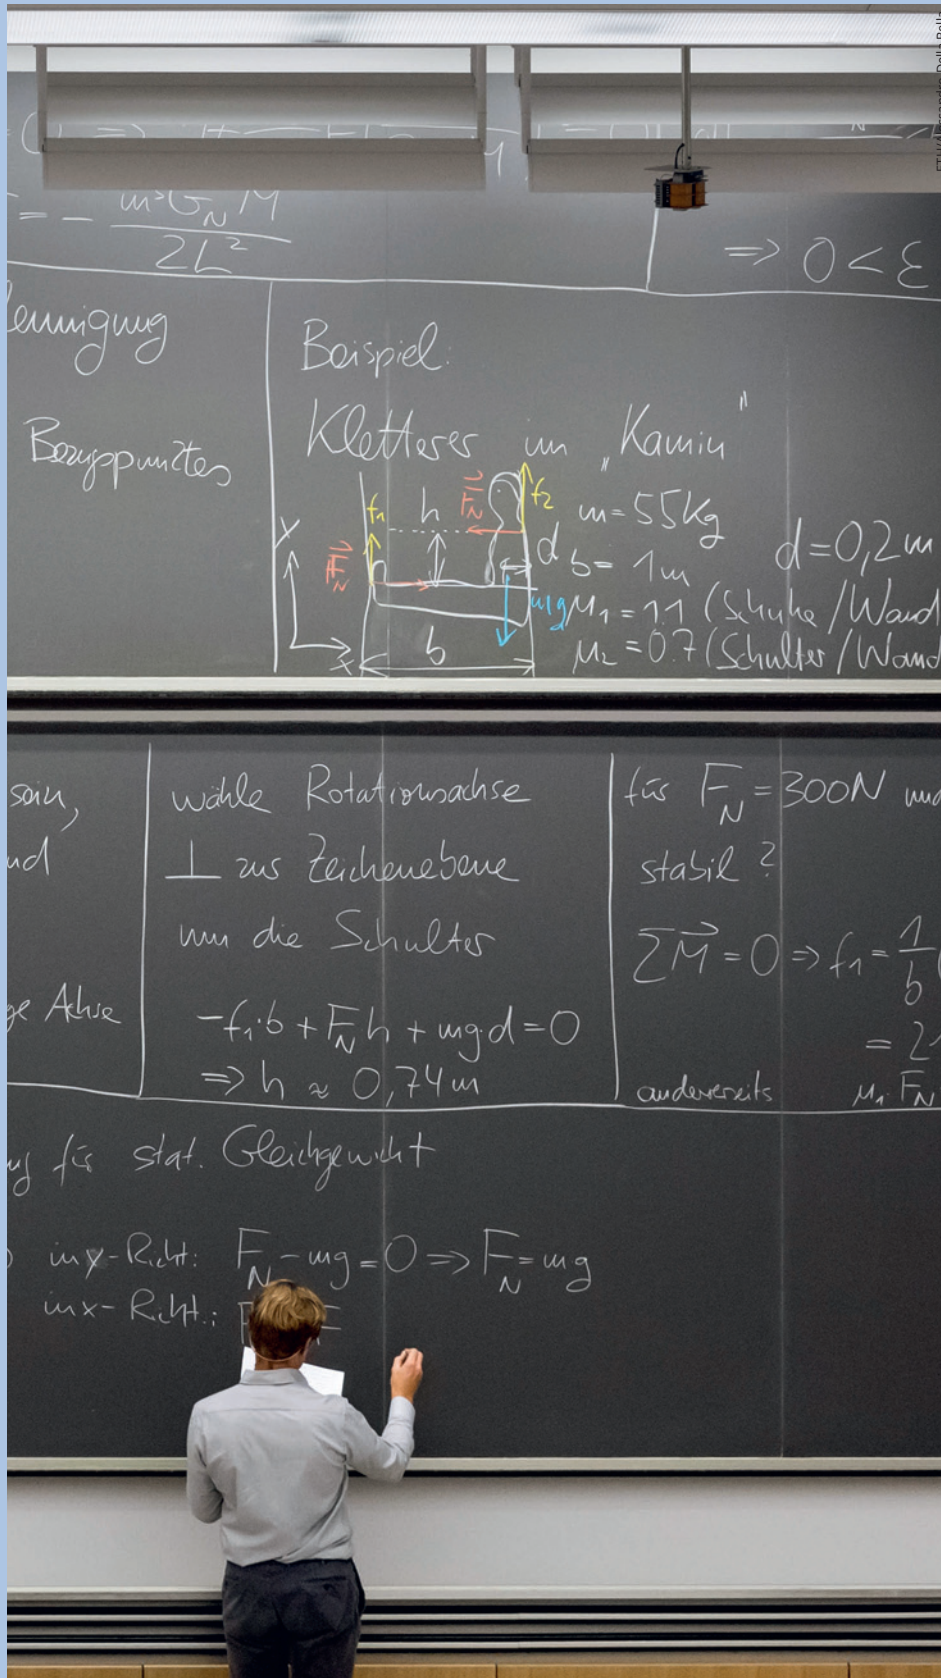 = - m³G_N M / 2L²
=> 0 < ε
Bezugspunktes
Beispiel:
Kletterer im „Kamin"
f₁ h F⃗_N f₂
m = 55 kg
d = 0,2 m
y
F⃗_N
d
b = 1 m
mg
μ₁ = 1.1 (Schuhe / Wand
x
b
μ₂ = 0.7 (Schulter / Wand
sein,
ge Achse
wähle Rotationsachse
⊥ zur Zeichenebene
um die Schulter
-f₁·b + F_N h + mg·d = 0
=> h ≈ 0,74 m
für F_N = 300N und
stabil ?
∑M⃗ = 0 => f₁ = 1/b
= 2
andererseits μ₁·F_N
für stat. Gleichgewicht
in y-Richt: F_N - mg = 0 => F_N = mg
in x-Richt.: